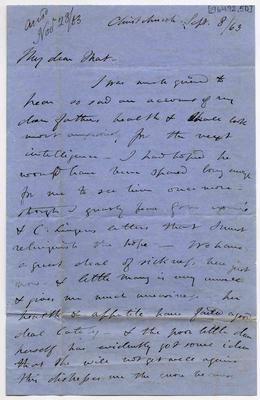 [96492.50]
ansd
Novr 28/63
Christchurch Sept. 8/63
My dear Mat.
I was much grieved to
hear so sad an account of my
dear father's health & shall look
most anxiously for the next
intelligence - I had hoped he
would have been spared long enough
for me to see him once more -
though I greatly fear from
& C. letters that I must
relinquish the hope - We have
a great deal of sickness here just
now - & little many is very unwell
& gives me much uneasiness - her
health & appetite have failed a good
deal lately - & the poor little dear
herself has evidently got some idea
that she will not get well again
this distresses me the more because